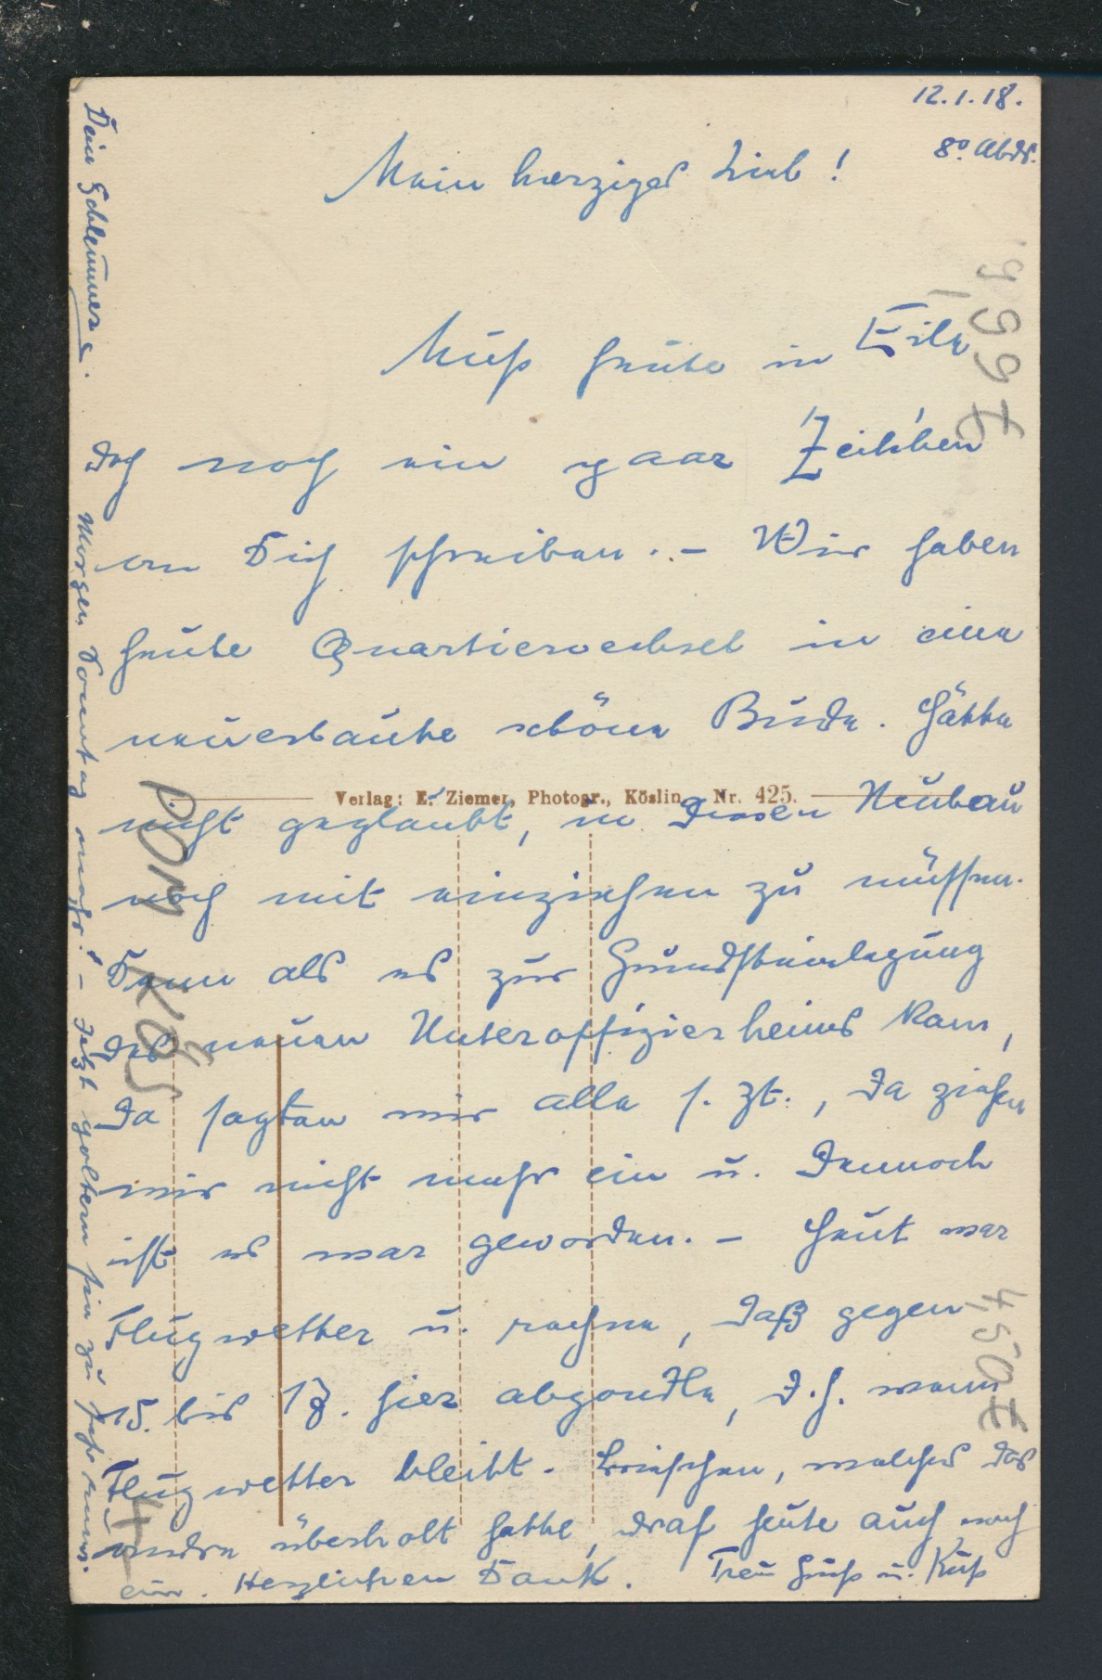 12.1.18.
8⁰ Abds.
Mein herziges Lieb!
Muß heute in Eile
doch noch ein paar Zeilchen
an Dich schreiben. – Wir haben
heute Quartierwechsel in eine
neuerbaute schöne Bude. Hätte
Verlag: E. Ziemer, Photogr., Köslin. Nr. 425.
nicht geglaubt, in diesen Neubau
noch mit einziehen zu müssen.
Denn als es zur Grundsteinlegung
des neuen Unteroffizierheims kam,
da sagten wir alle s. Zt., da ziehen
wir nicht mehr ein u. dennoch
ist es war geworden. – Heut war
Flugwetter u. rechne, daß gegen
15. bis 18. hier abgondle, d.h. wenn
Flugwetter bleibt. Briefchen, welches das
andre überholt hatte, traf heute auch noch
ein. Herzlichen Dank. Treu Gruß u. Kuß
Dein
Morgen Sonntag mehr! – Jetzt poltern sie zu sehr rum.
POM KÖS
4,50€